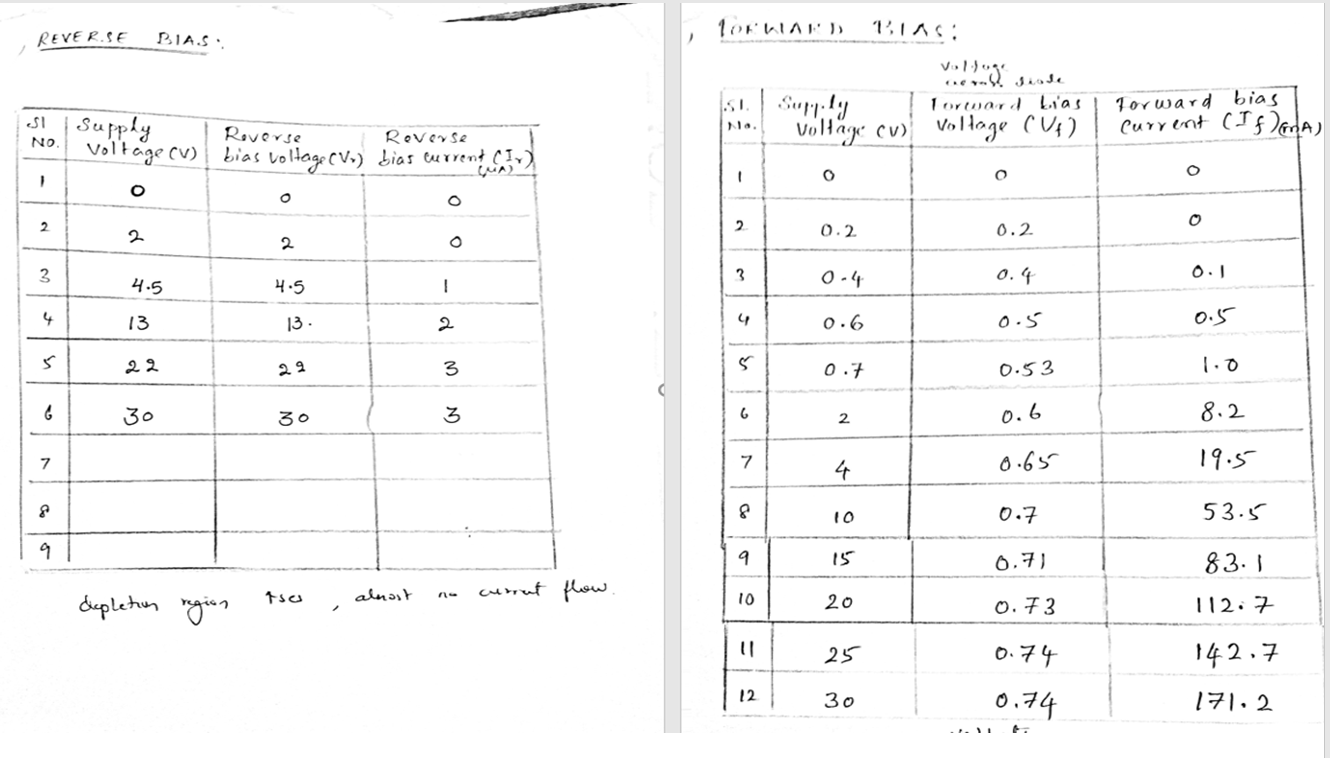 REVERSE BIAS:
Sl No. Supply Voltage (V) Reverse bias voltage (Vr) Reverse bias current (Ir) (μA)
1 0 0 0
2 2 2 0
3 4.5 4.5 1
4 13 13. 2
5 22 22 3
6 30 30 3
7
8
9
depletion region ↑ses, almost no current flow.
FORWARD BIAS:
Voltage
across diode
Sl. No. Supply Voltage (V) Forward bias Voltage (Vf) Forward bias Current (If) (mA)
1 0 0 0
2 0.2 0.2 0
3 0.4 0.4 0.1
4 0.6 0.5 0.5
5 0.7 0.53 1.0
6 2 0.6 8.2
7 4 0.65 19.5
8 10 0.7 53.5
9 15 0.71 83.1
10 20 0.73 112.7
11 25 0.74 142.7
12 30 0.74 171.2